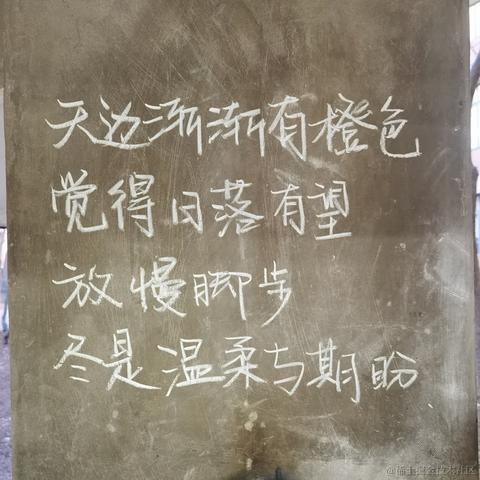 天边渐渐有橙色
觉得日落有望
放慢脚步
尽是温柔与期盼
@稀土掘金技术社区